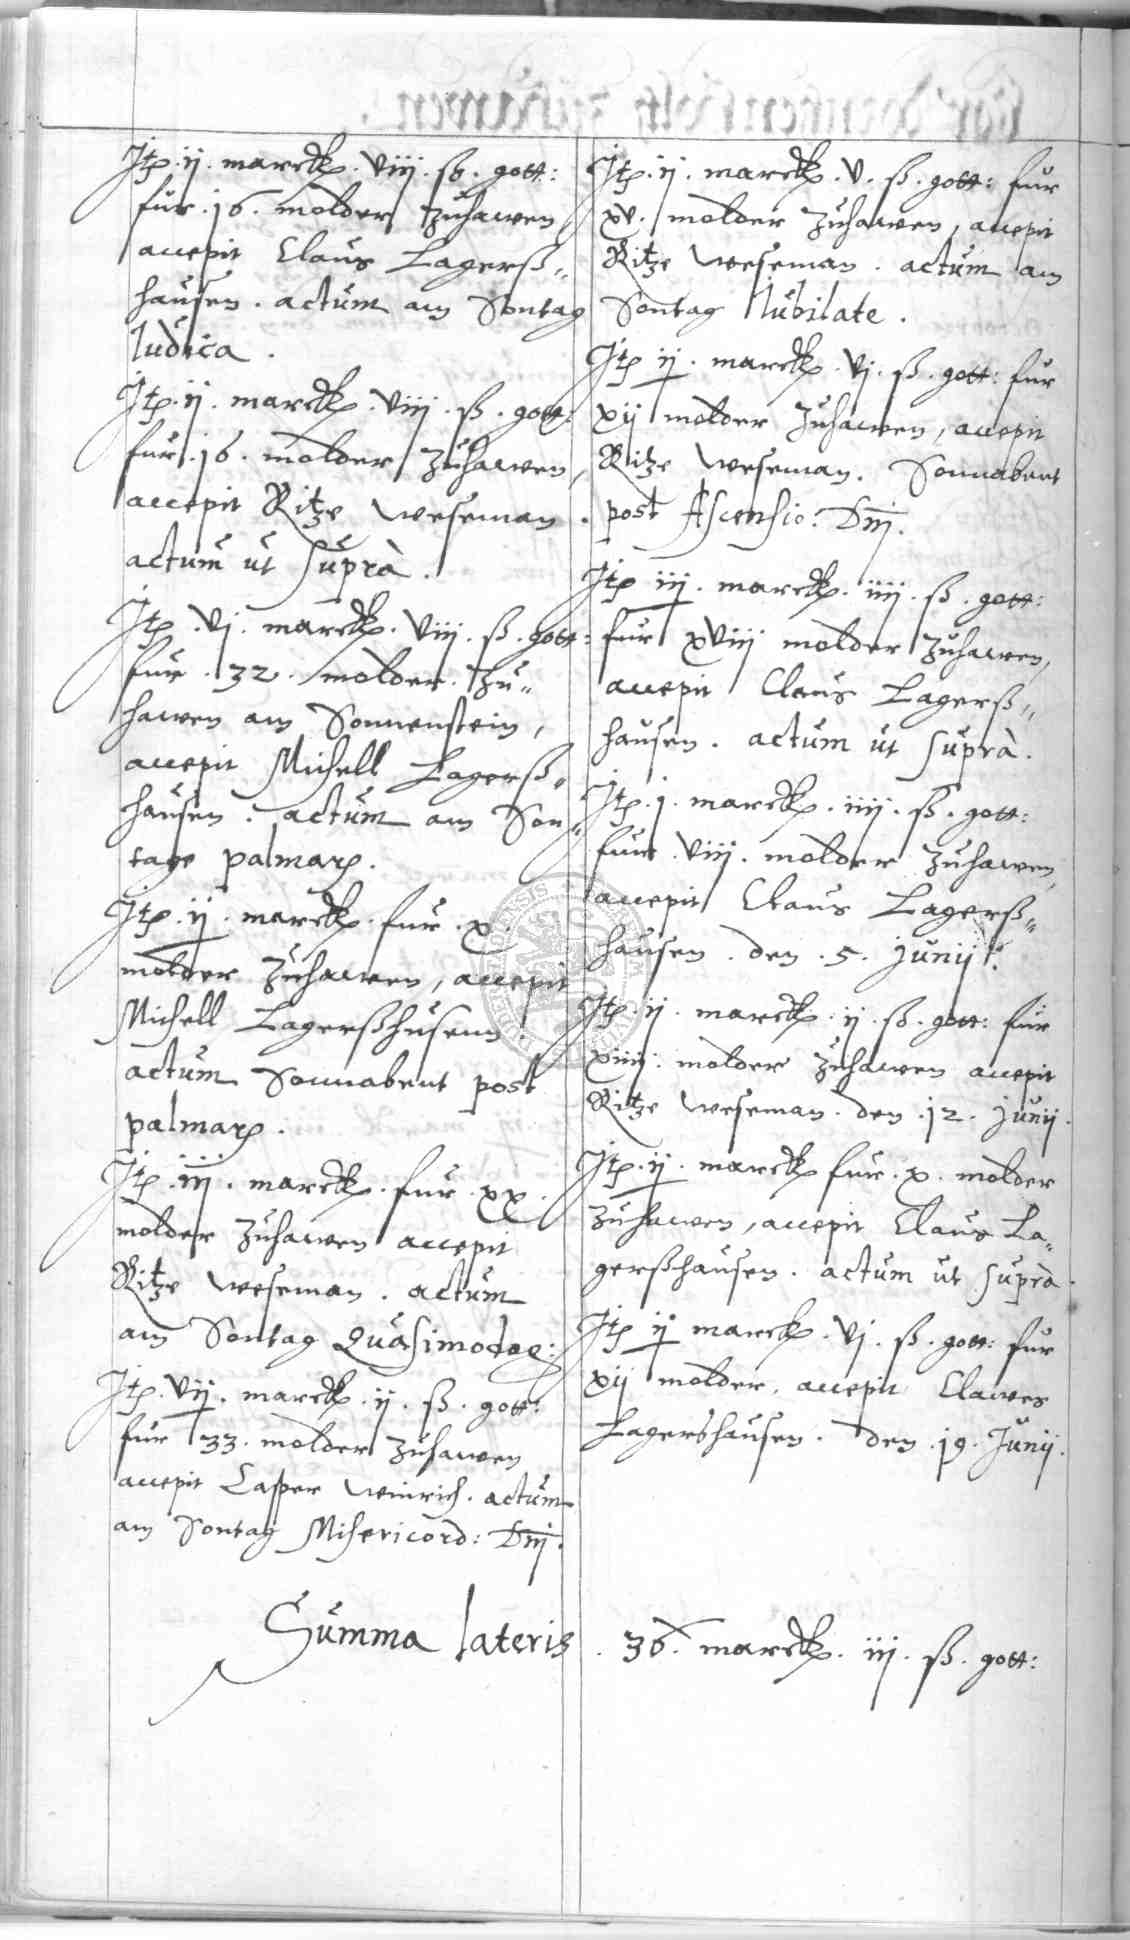 Itp. ij. marck. viij. ß. gott:
fur. 16. molder zuhawen
accepit Claus Lagerß„
hausen. actum am Sontag
Iudica.
Itp. ij. marck. viij. ß. gott:
fur. 16. molder zuhawen,
accepit Ritze Weseman.
actum ut suprà.
Itp. vj. marck. viij. ß. gott:
fur. 32. molder. zu„
hawen am Sonnenstein,
accepit Michell Lagerß„
hausen. actum am Son„
tage palmarp.
Itp. ij. marck. fur. x.
molder zuhawen, accepit
Michell Lagerßhusenn.
actum Sonnabent post
palmarp.
Itp. iij. marck. fur. xx.
molder zuhawen accepit
Ritze Weseman. actum
am Sontag Quasimodog:
Itp. vij. marck. ij. ß. gott:
fur 33. molder zuhawen
accepit Casper Winrich. actum
am Sontag Misericord: Dnj.
Itp. ij. marck. v. ß. gott: fur
xv. molder zuhawen, accepit
Ritze Weseman. actum am
Sontag Iubilate.
Itp ij. marck. vj. ß. gott: fur
xij molder zuhawen, accepit
Ritze Weseman. Sonnabent
post Ascensio: Dnj.
Itp iij. marck. iiij. ß. gott:
fur xviij molder zuhawen,
accepit Claus Lagerß„
hausen. actum ut suprà.
Itp. j. marck. iiij. ß. gott:
fur. viij. molder zuhawen,
accepit Claus Lagerß„
hausen. den. 5. junij.
Itp. ij. marck. ij. ß. gott: fur
xiiij. molder zuhawen accepit
Ritze Weseman. den. 12. junij.
Itp. ij. marck fur. x. molder
zuhawen, accepit Claus La„
gerßhausen. actum ut suprà.
Itp ij marck. vj. ß. gott: fur
xij molder, accepit Clawes
Lagershausen. den. 19. Junij.
Summa lateris. 36. marck. iij. ß. gott: